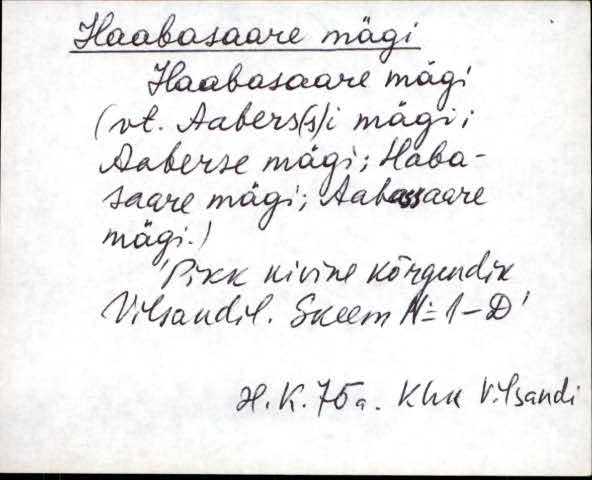 Haabasaare mägi
Haabasaare mägi
(vt. Aabers(s)i mägi;
Aaberse mägi; Haba-
saare mägi; Aabassaare
mägi.)
'Pikk kivine kõrgendik
Vilsandil. Skeem N=1-D'
H.K.75a. Khk Vilsandi